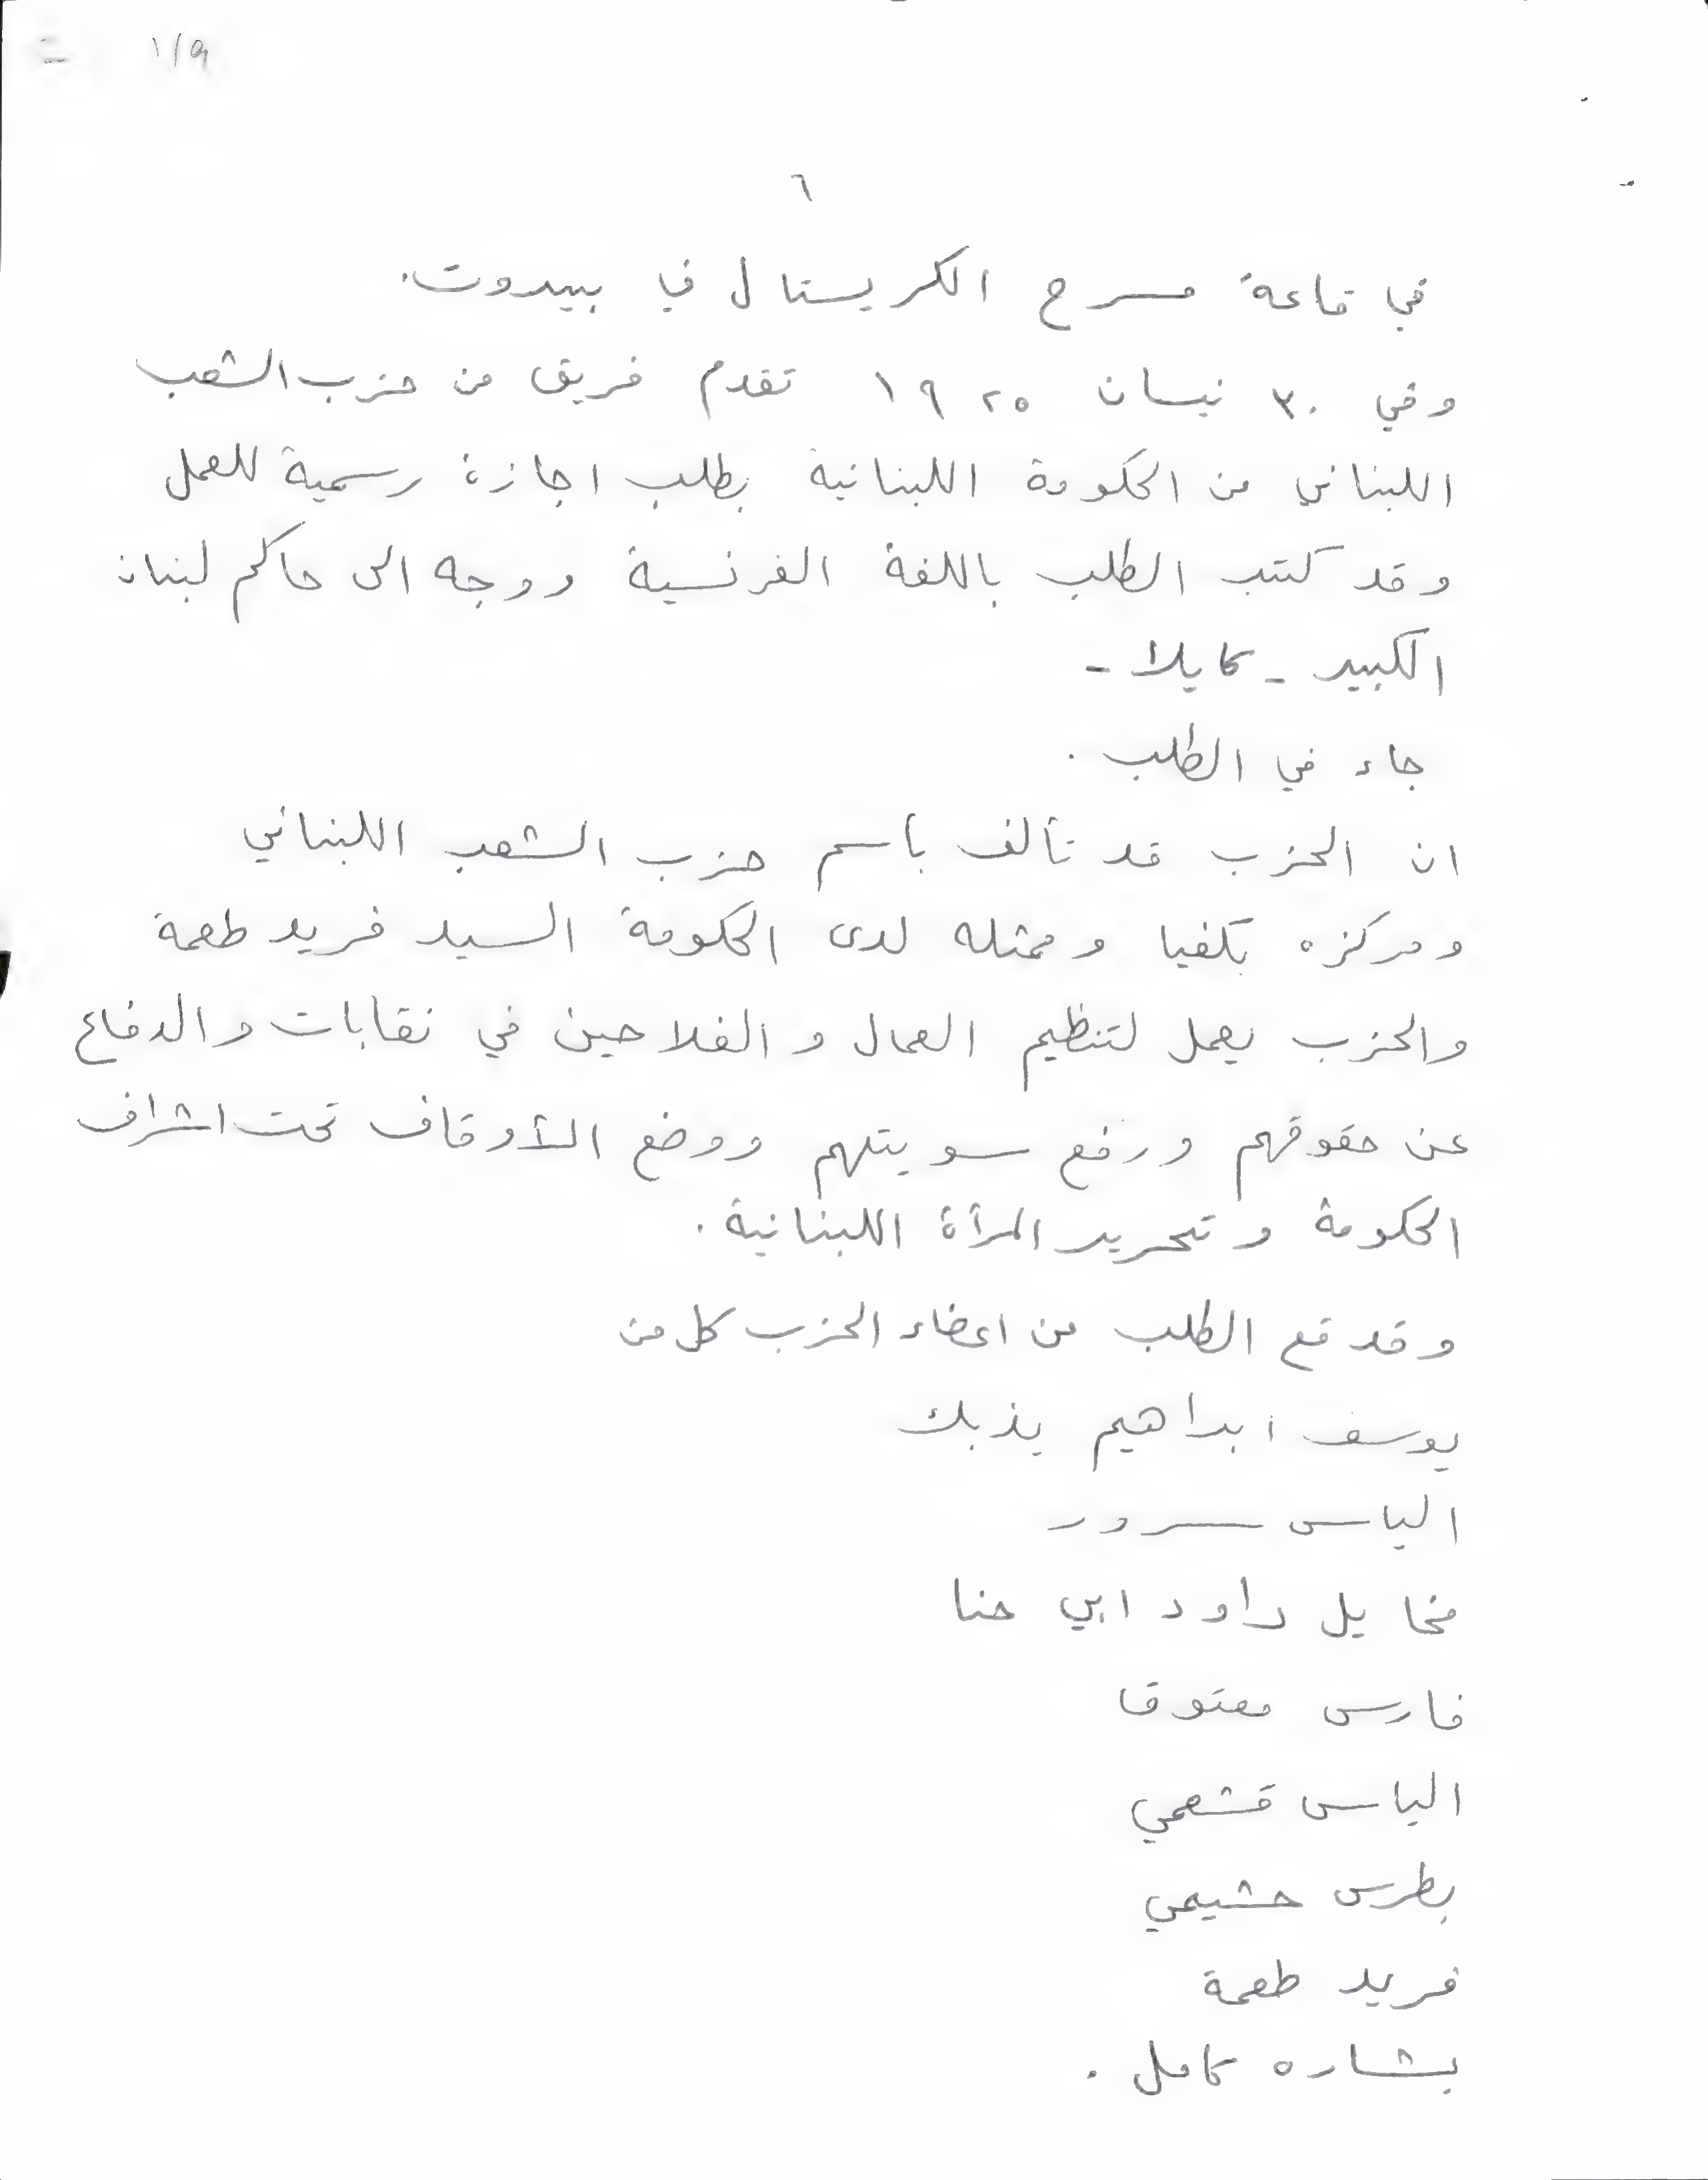 ١/٩
٦
في قاعة مسرح الكريستال في بيروت.
وفي ٣٠ نيسان ١٩٢٥ تقدم فريق من حزب الشعب
اللبناني من الحكومة اللبنانية بطلب اجازة رسمية للعمل
وقد كتب الطلب باللغة الفرنسية ووجه الى حاكم لبنان
الكبير - كايلا -
جاء في الطلب .
ان الحزب قد تألف باسم حزب الشعب اللبناني
ومركزه بكفيا وممثله لدى الحكومة السيد فريد طعمة
والحزب يعمل لتنظيم العمال والفلاحين في نقابات والدفاع
عن حقوقهم ورفع سويتهم ووضع الأوقاف تحت اشراف
الحكومة وتحرير المرأة اللبنانية .
وقد قع الطلب من اعضاء الحزب كل من
يوسف ابراهيم يزبك
الياس سرور
مخايل داود ابي حنا
فارس معتوق
الياس قشعمي
بطرس حشيمي
فريد طعمة
بشاره كامل .